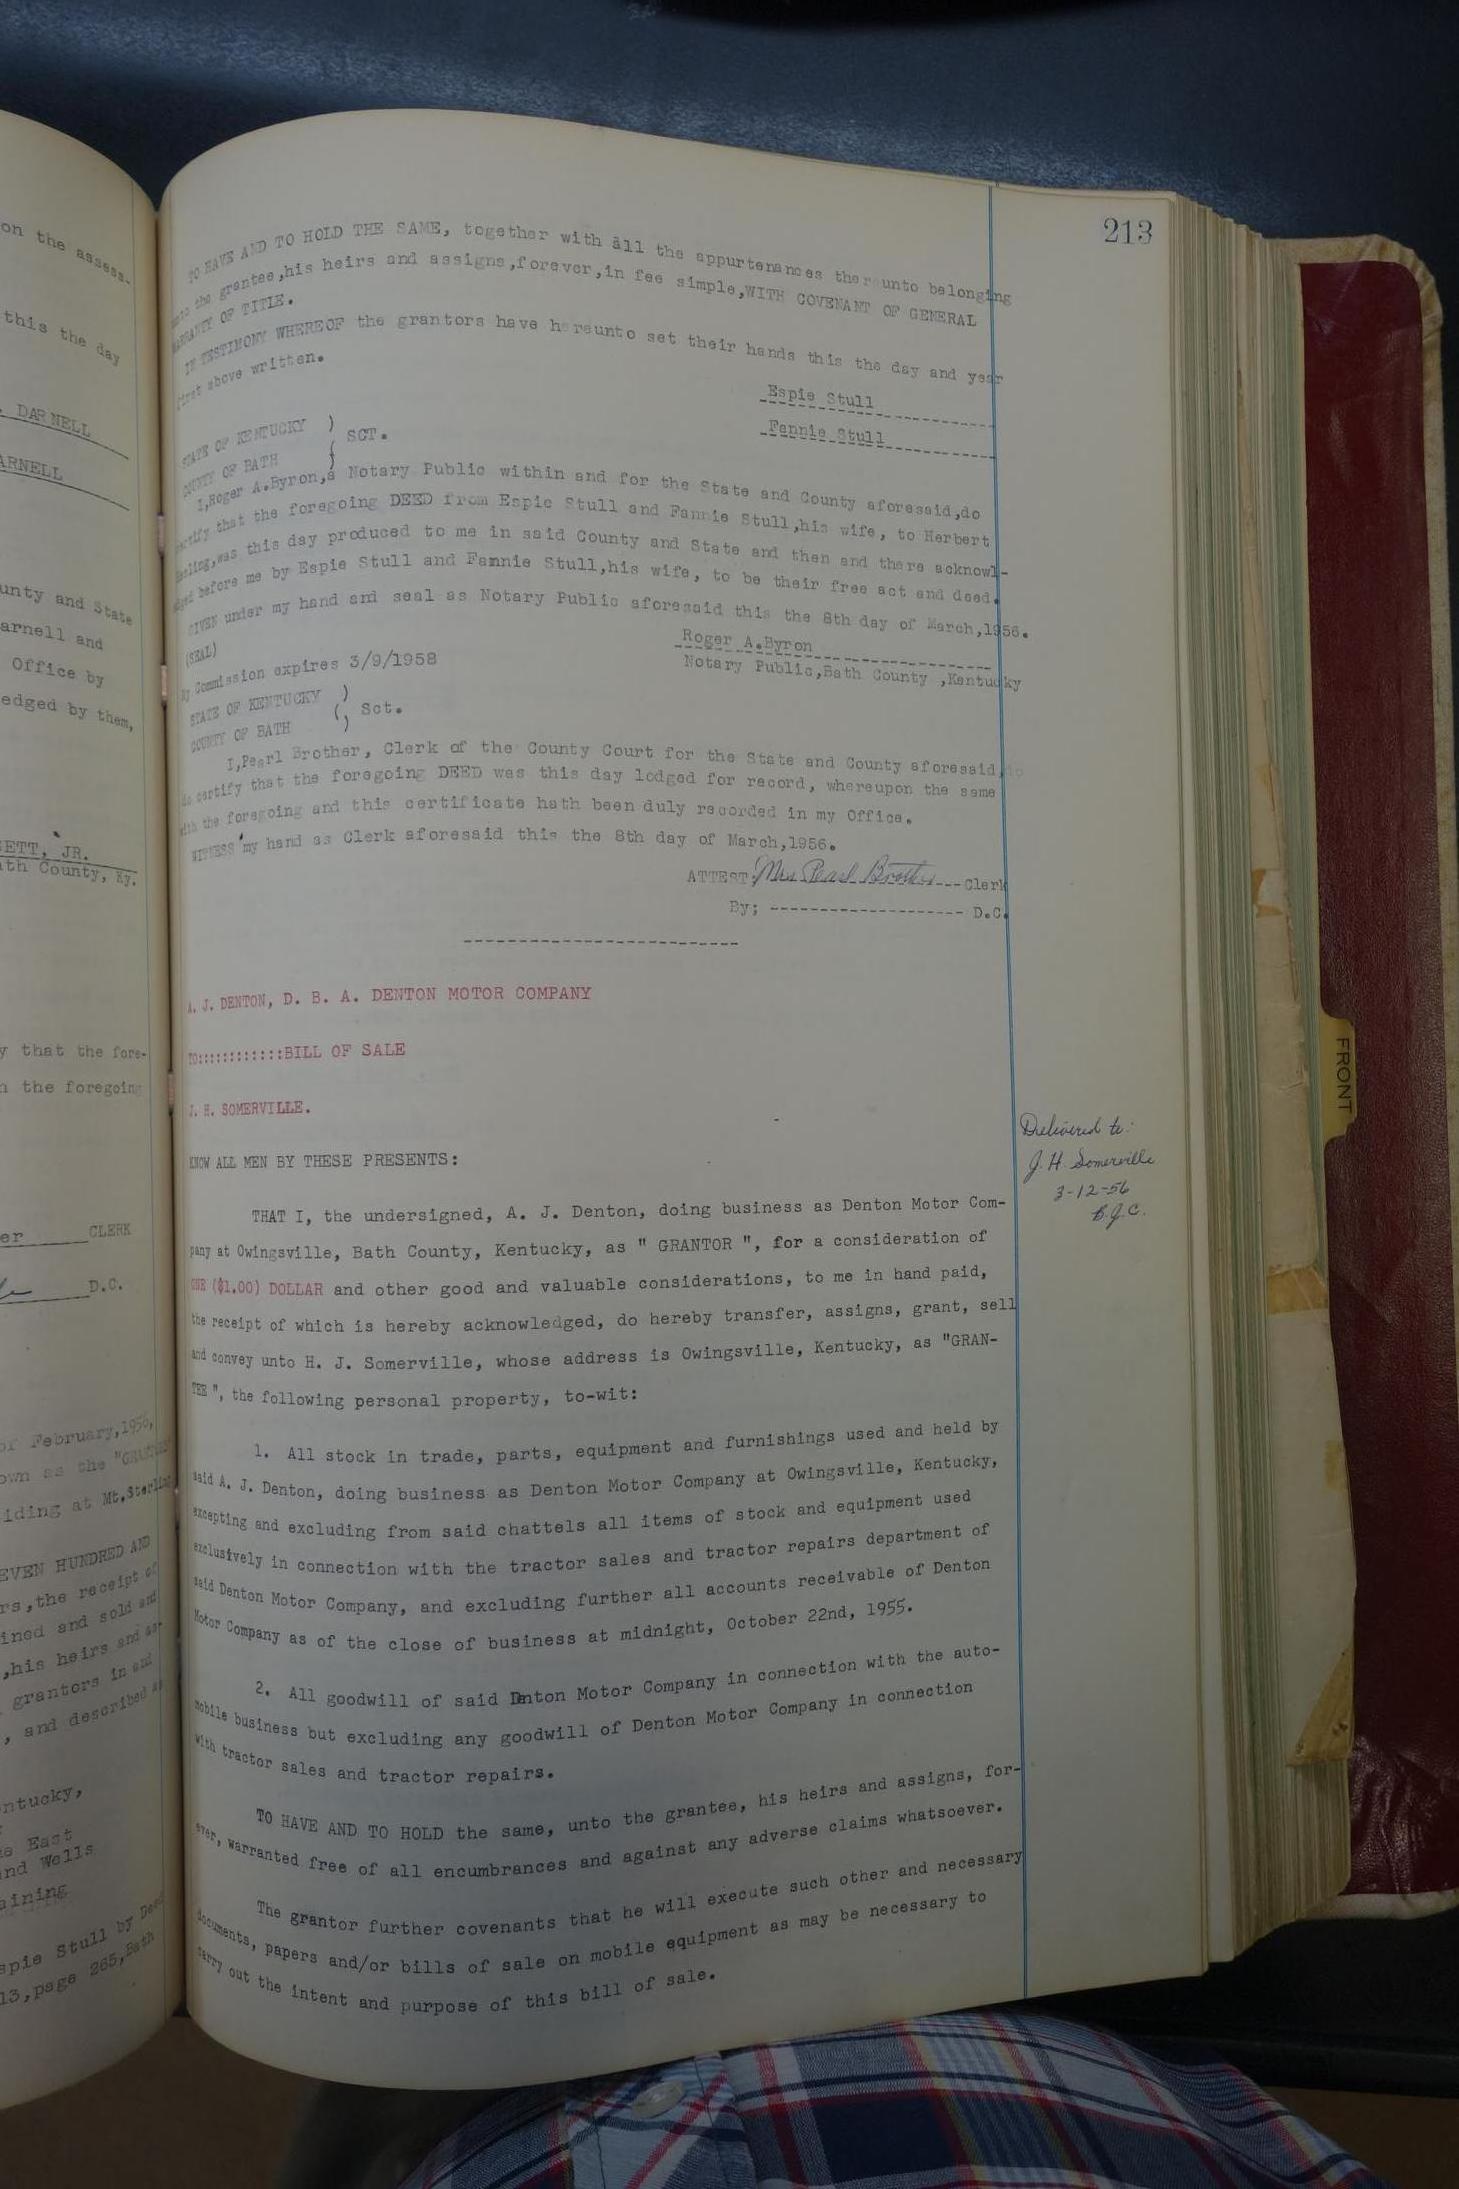 on the assess-
this the day
. DARNELL
ARNELL
unty and State
arnell and
Office by
edged by them,
SETT, JR.
ath County, Ky.
y that the fore-
n the foregoing
er CLERK
D.C.
of February,1956,
own as the "GRANTEE"
iding at Mt.Sterling
EVEN HUNDRED AND
rs,the receipt of
ined and sold and
,his heirs and as-
grantors in and
, and described as
entucky,
East
and Wells
aining
spie Stull by Deed
13,page 265,Bath
213
TO HAVE AND TO HOLD THE SAME, together with all the appurtenances thereunto belonging
unto the grantee,his heirs and assigns,forever,in fee simple,WITH COVENANT OF GENERAL
WARRANTY OF TITLE.
IN TESTIMONY WHEREOF the grantors have hereunto set their hands this the day and year
first above written.
Espie Stull
Fannie Stull
STATE OF KENTUCKY )
COUNTY OF BATH ( SCT.
I,Roger A.Byron,a Notary Public within and for the State and County aforesaid,do
certify that the foregoing DEED from Espie Stull and Fannie Stull,his wife, to Herbert
was this day produced to me in said County and State and then and there acknowl-
edged before me by Espie Stull and Fannie Stull,his wife, to be their free act and deed.
GIVEN under my hand and seal as Notary Public aforesaid this the 8th day of March,1956.
(SEAL)
Roger A.Byron
My Commission expires 3/9/1958
Notary Public,Bath County ,Kentucky
STATE OF KENTUCKY )
(, Sct.
COUNTY OF BATH )
I,Pearl Brother, Clerk of the County Court for the State and County aforesaid,do
do certify that the foregoing DEED was this day lodged for record, whereupon the same
with the foregoing and this certificate hath been duly recorded in my Office.
WITNESS my hand as Clerk aforesaid this the 8th day of March,1956.
ATTEST: Mrs Pearl Brother Clerk
By; -------------------- D.C.
-------------------------
A. J. DENTON, D. B. A. DENTON MOTOR COMPANY
TO::::::::::::BILL OF SALE
J. H. SOMERVILLE.
Delivered to:
J. H. Somerville
3-12-56
B.J.C.
KNOW ALL MEN BY THESE PRESENTS:
THAT I, the undersigned, A. J. Denton, doing business as Denton Motor Com-
pany at Owingsville, Bath County, Kentucky, as " GRANTOR ", for a consideration of
ONE ($1.00) DOLLAR and other good and valuable considerations, to me in hand paid,
the receipt of which is hereby acknowledged, do hereby transfer, assigns, grant, sell
and convey unto H. J. Somerville, whose address is Owingsville, Kentucky, as "GRAN-
TEE ", the following personal property, to-wit:
1. All stock in trade, parts, equipment and furnishings used and held by
said A. J. Denton, doing business as Denton Motor Company at Owingsville, Kentucky,
excepting and excluding from said chattels all items of stock and equipment used
exclusively in connection with the tractor sales and tractor repairs department of
said Denton Motor Company, and excluding further all accounts receivable of Denton
Motor Company as of the close of business at midnight, October 22nd, 1955.
2. All goodwill of said Denton Motor Company in connection with the auto-
mobile business but excluding any goodwill of Denton Motor Company in connection
with tractor sales and tractor repairs.
TO HAVE AND TO HOLD the same, unto the grantee, his heirs and assigns, for-
ever, warranted free of all encumbrances and against any adverse claims whatsoever.
The grantor further covenants that he will execute such other and necessary
documents, papers and/or bills of sale on mobile equipment as may be necessary to
carry out the intent and purpose of this bill of sale.
FRONT